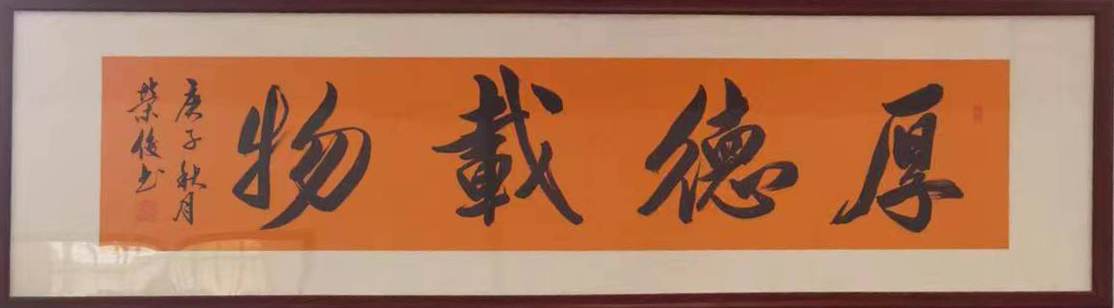 厚德載物
庚子秋月
榮俊书